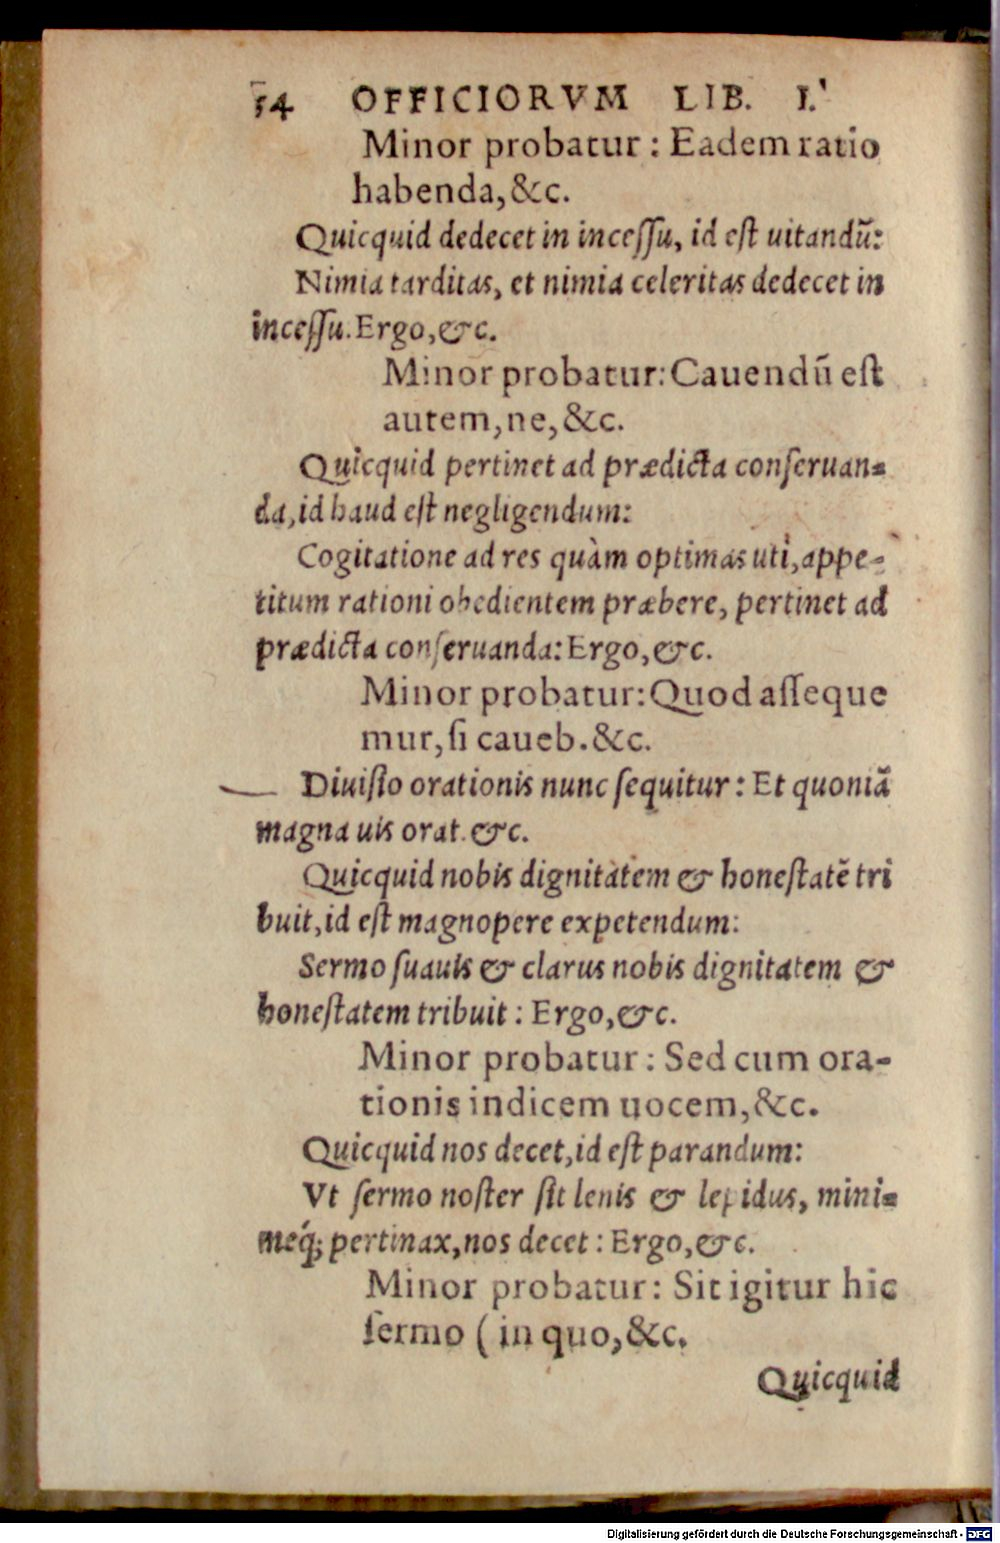 54 OFFICIORVM LIB. I.
Minor probatur : Eadem ratio
habenda, &c.
Quicquid dedecet in inceſſu, id eſt uitandũ:
Nimia tarditas, et nimia celeritas dedecet in
inceſſu. Ergo, &c.
Minor probatur: Cauendũ eſt
autem, ne, &c.
Quicquid pertinet ad prædicta conſeruan-
da, id haud eſt negligendum:
Cogitatione ad res quàm optimas uti, appe-
titum rationi obedientem præbere, pertinet ad
prædicta conſeruanda: Ergo, &c.
Minor probatur: Quod aſſeque
mur, ſi caueb. &c.
Diuiſio orationis nunc ſequitur: Et quoniã
magna uis orat. &c.
Quicquid nobis dignitatem & honeſtatẽ tri
buit, id eſt magnopere expetendum:
Sermo ſuauis & clarus nobis dignitatem &
honeſtatem tribuit : Ergo, &c.
Minor probatur : Sed cum ora-
tionis indicem uocem, &c.
Quicquid nos decet, id eſt parandum:
Vt ſermo noſter ſit lenis & lepidus, mini-
meq́; pertinax, nos decet : Ergo, &c.
Minor probatur: Sit igitur hic
ſermo ( in quo, &c.
Quicquid
Digitalisierung gefördert durch die Deutsche Forschungsgemeinschaft - DFG